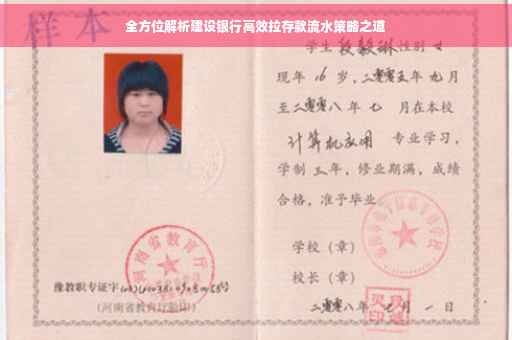 全方位解析建设银行高效拉存款流水策略之道
样本
学生 段毅琳 性别 女
现年 16 岁,二零零五年 九 月
至二零零八 年 七 月在本校
计算机应用 专业学习,
学制 三 年,修业期满,成绩
合格,准予毕业
学校(章)
校长(章)
二零零八年 七 月 一 日
河南省教育厅
豫教职专证字
(河南省教育厅验印)